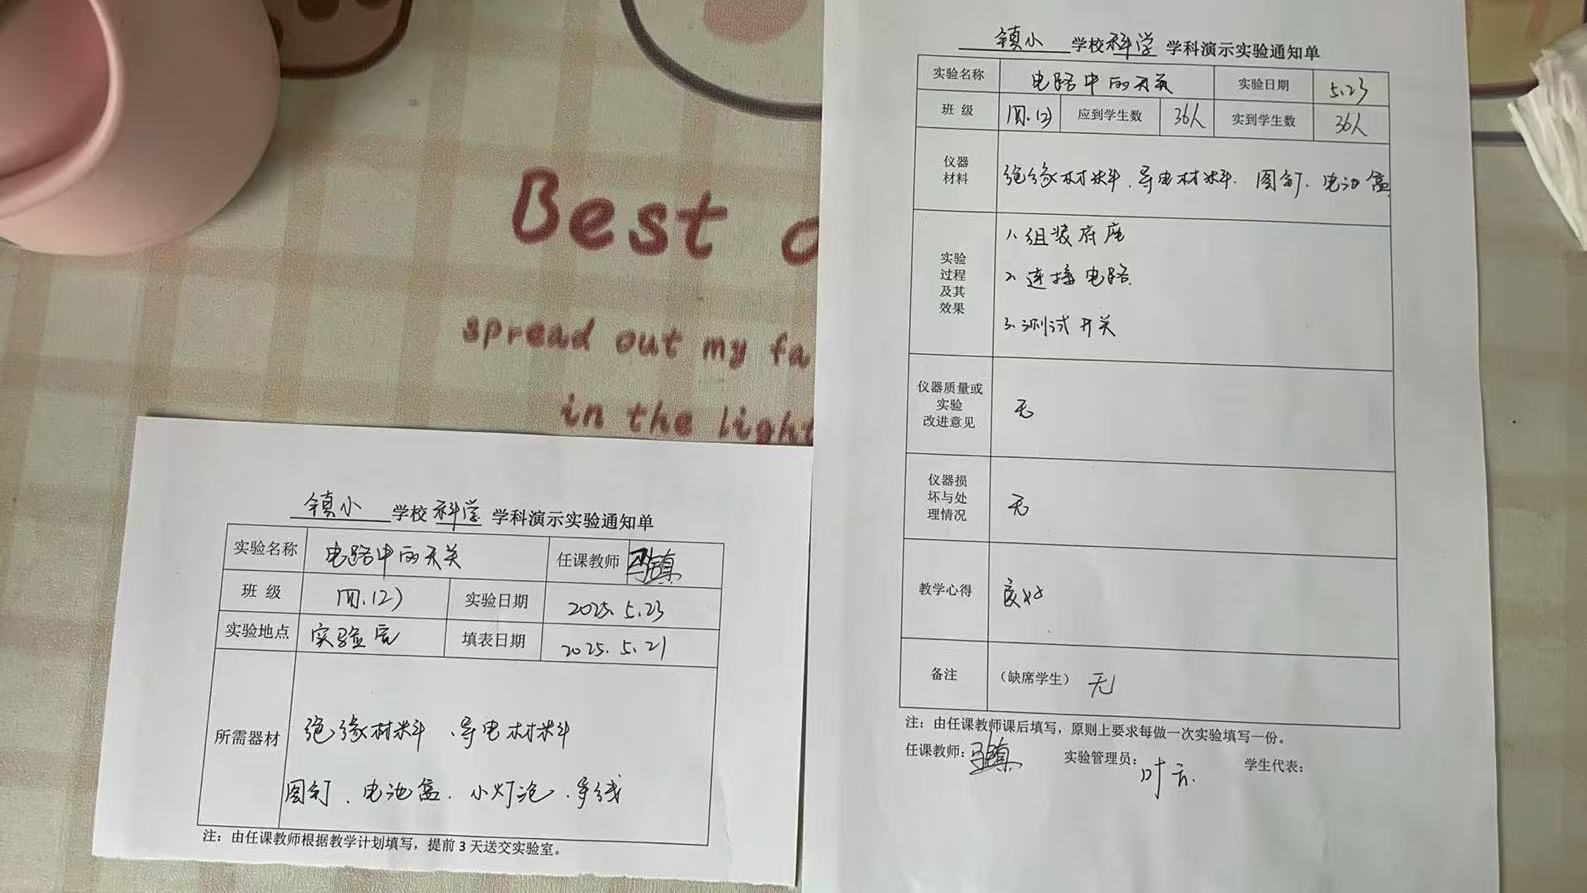 Best
spread out my fa
in the light
镇小 学校 科学 学科演示实验通知单
实验名称 电路中的开关 任课教师
班 级 四.(2) 实验日期 2025.5.23
实验地点 实验室 填表日期 2025.5.21
所需器材 绝缘材料、导电材料
图钉、电池盒、小灯泡、导线
注:由任课教师根据教学计划填写,提前3天送交实验室。
镇小 学校 科学 学科演示实验通知单
实验名称 电路中的开关 实验日期 5.23
班 级 四.(2) 应到学生数 36人 实到学生数 36人
仪器
材料
绝缘材料、导电材料、图钉、电池盒
实验
过程
及其
效果
1、组装底座
2、连接电路
3、测试开关
仪器质量或
实验
改进意见
无
仪器损
坏与处
理情况
无
教学心得 良好
备注 (缺席学生) 无
注:由任课教师课后填写,原则上要求每做一次实验填写一份。
任课教师: 实验管理员: 学生代表: